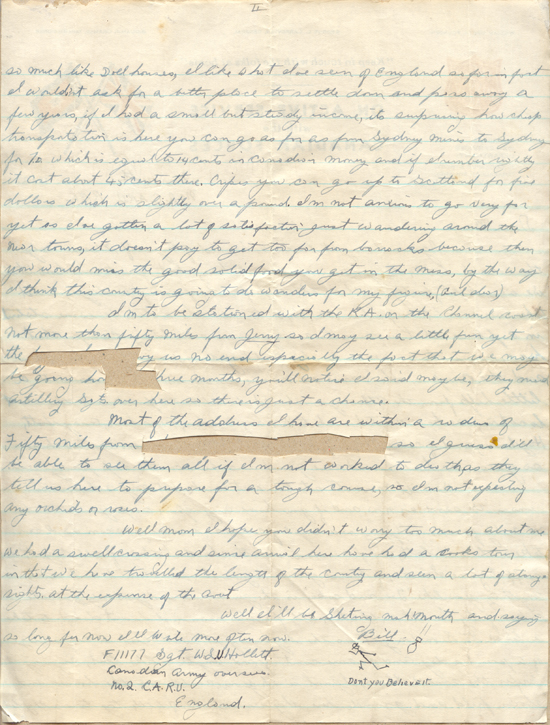 II
so much like Doll houses, I like what I've seen of England so far in fact
I wouldn't ask for a better place to settle down and pass away a
few years, if I had a small but steady income, its surprising how cheap
transportation is here you can go as far as from Sydney mines to Sydney
for which is equal to 14 cents in Canadian money and if I remember rightly
it cost about 45 cents there. Cripes you can go up to Scotland for five
dollars which is slightly over a pound. I'm not anxious to go very far
yet as I've gotten a lot of satisfaction just wandering around the
near towns, it doesn't pay to get too far from barracks because then
you would miss the good solid food you get in the mess, by the way
I think this country is going to do wonders for my figure, (
I'm to be stationed with the R.A. on the Channel coast
not more than fifty miles from Jerry so I may see a little fun yet
the us no end especially the fact that we may
be going months, you'll notice I said maybe, they need
artillery Sgts over here so there is just a chance.
Most of the address I have are within a radius of
Fifty miles from so I guess I'll
be able to see them all if I'm not worked to death as they
tell us here to prepare for a tough course, so I'm not expecting
any orchids or roses.
Well Mom I hope you didn't worry too much about me
we had a swell crossing and since arrival here have had a Cooks tour
in that we have travelled the length of the country and seen a lot of strange
sights, at the expense of the Gov't
Well I'll be shutting my mouth and saying
so long for now I'll write more often now.
Bill
F11177 Sgt. W.J. Hollett
Canadian Army overseas
No. 2. C.A.R.U.
England.
Dont you Believe it